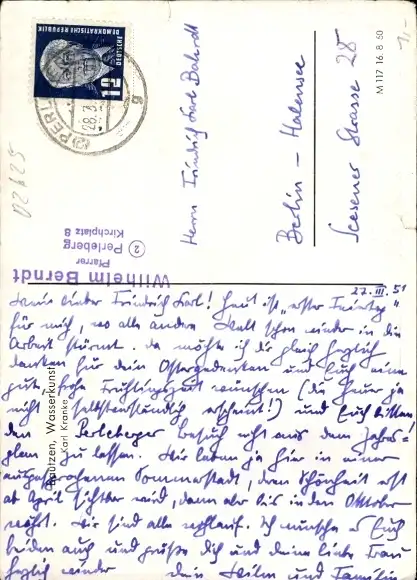 DEUTSCHE
DEMOKRATISCHE REPUBLIK
12
PERL
28.3.
g
M 117 16 8 50
Herrn Friedrich Karl
Berlin - Halensee
Strasse 28
02625
Wilhelm Berndt
Pfarrer
② Perleberg
Kirchplatz 8
Bautzen, Wasserkunst
Karl Kranke
27. III. 51
Mein lieber Friedrich Karl! Heut ist „erster Feiertag"
für mich, wo alle andere Welt schon wieder in die
Arbeit stürmt. da möchte ich dir gleich herzlich
danken für dein Ostergedenken und Euch eine
gute, frohe Frühlingszeit wünschen (die heuer ja
nicht selbstverständlich erscheint!) und Euch bitten
den Perleberger Besuch nicht aus dem Jahres=
plan zu lassen. Wir leben ja hier in einer
ausgesprochenen Sommerstadt, deren Schönheit erst
ab April sichtbar wird, dann aber bis in den Oktober
währt. Wir sind alle wohlauf. Ich wünsche es Euch
beiden auch und grüße dich und deine liebe Frau
herzlich wieder dein und Familie